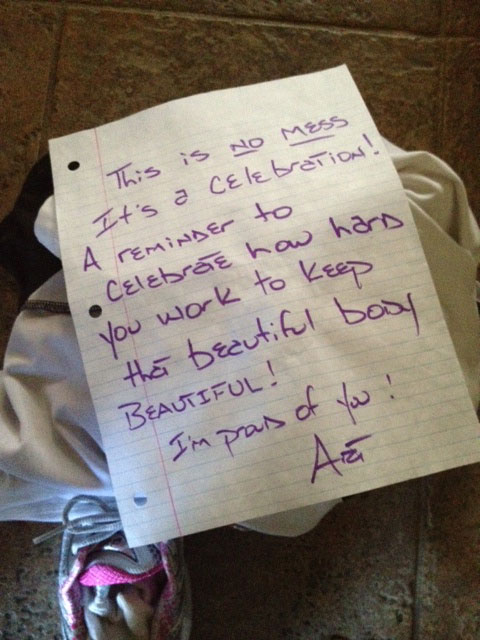 This is NO MESS
It's a celebration!
A reminder to
celebrate how hard
you work to keep
that beautiful body
BEAUTIFUL!
I'm proud of you!